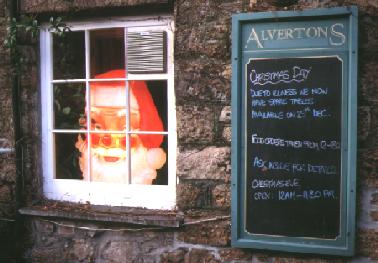 ALVERTONS
CHRISTMAS DAY
DUE TO ILLNESS WE NOW
HAVE SPARE TABLES
AVAILABLE ON 25TH DEC.
FOOD ORDERS TAKEN FROM 12-
ASK INSIDE FOR DETAILS
CHRISTMAS EVE
OPEN: 12AM - 11.30PM